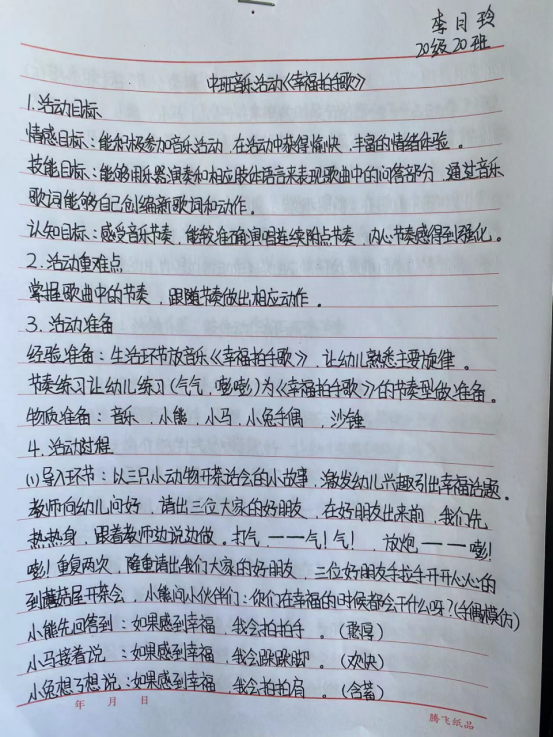 李日玲
20级20班
中班音乐活动《幸福拍手歌》
1.活动目标
情感目标：能积极参加音乐活动，在活动中获得愉快，丰富的情绪体验。
技能目标：能够用乐器演奏和相应肢体语言来表现歌曲中的问答部分，通过音乐
歌词能够自己创编新歌词和动作。
认知目标：感受音乐节奏，能较准确演唱连续附点节奏，内心节奏感得到强化。
2.活动重难点
掌握歌曲中的节奏，跟随节奏做出相应动作。
3.活动准备
经验准备：生活环节放音乐《幸福拍手歌》，让幼儿熟悉主要旋律。
节奏练习让幼儿练习(气气，嘭嘭)为《幸福拍手歌》的节奏型做准备。
物质准备：音乐，小熊，小马，小兔手偶，沙锤
4.活动过程
(1)导入环节：以三只小动物开茶话会的小故事，激发幼儿兴趣引出幸福话题。
教师向幼儿问好，请出三位大家的好朋友，在好朋友出来前，我们先
热热身，跟着教师边说边做。打气，一一气！气！，放炮一一嘭!
嘭！重复两次，隆重请出我们大家的好朋友，三位好朋友手拉手开开心心的
到蘑菇屋开茶会，小熊问小伙伴们：你们在幸福的时候都会干什么呀？(手偶模仿)
小熊先回答到：如果感到幸福，我会拍拍手。(憨厚)
小马接着说：如果感到幸福，我会跺跺脚。(欢快)
小兔想了想说：如果感到幸福，我会拍拍肩。(含蓄)
年 月 日
腾飞纸品